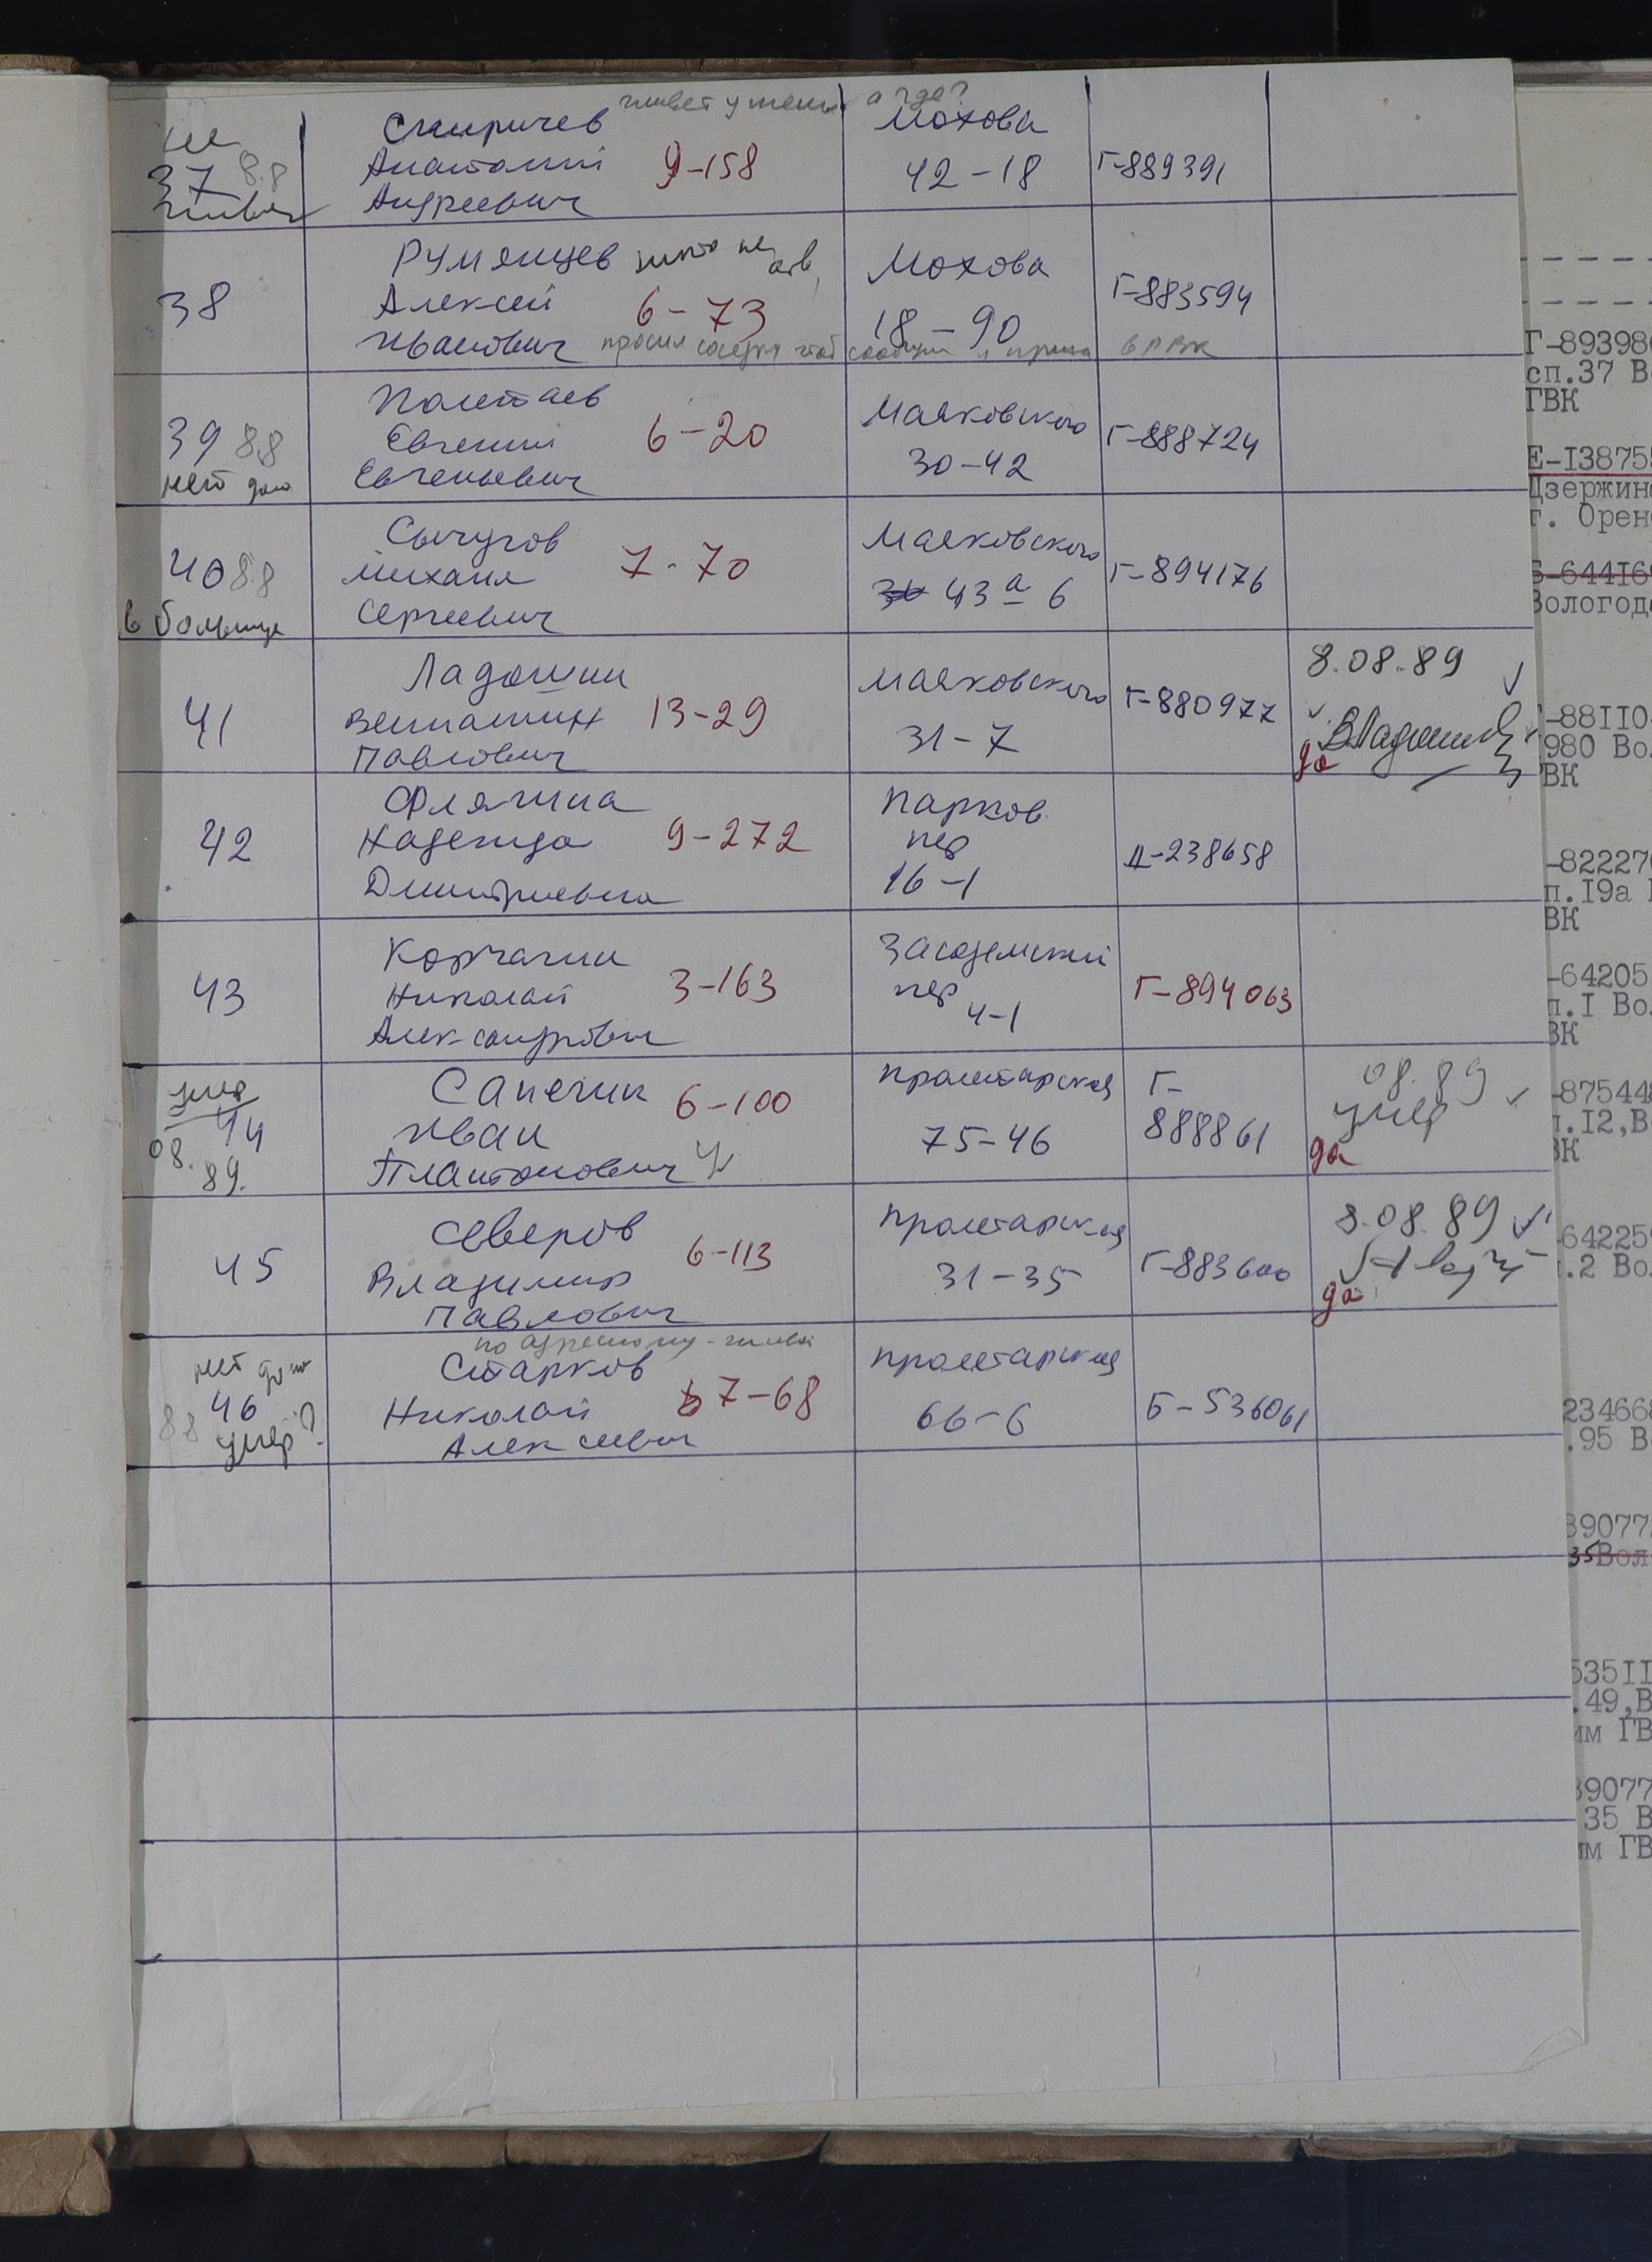 живет у жены а где?
не
37 8.8
живет
Спиричев
Анатолий 9-158
Андреевич
Мохова
42-18
Г-889391
38
Румянцев никто не отв.
Алексей 6-73
Иванович просил соседку чтоб сообщи в РВК
Мохова
18-90
Г-883594
39 8.8
нет дома
Полетаев
Евгений 6-20
Евгеньевич
Маяковского
30-42
Г-888724
40 8.8
в больнице
Сычугов
Михаил 7-70
Сергеевич
Маяковского
43а 6
Г-894176
41
Ладошин
Вениамин 13-29
Павлович
Маяковского
31-7
Г-880977
8.08.89
да ВЛадошин
42
Флягина
Надежда 9-272
Дмитриевна
Парков.
пер
16-1
Д-238658
43
Корчагин
Николай 3-163
Александрович
Засодимский
пер
4-1
Г-894063
умер
44
08.
89.
Сапегин 6-100
Иван
Платонович
Пролетарская
75-46
Г-
888861
08.89
умер
да
45
Северов
Владимир 6-113
Павлович
Пролетарская
31-35
Г-883600
8.08.89
да
нет дома
46
8.8 умер?
по адресному - живой
Старков
Николай 7-68
Алексеевич
Пролетарская
66-6
Б-536061
Г-89398
сп.37 В
ГВК
Е-I3875
Дзержин
г. Орен
-644I6
Вологод
-88II0
980 Во
ВК
-82227
п.I9а
ВК
-64205
п.I Во
ВК
-87544
п.I2,В
ВК
64225
.2 Во
23466
.95 В
39077
35Вол
535II
.49,В
им ГВ
39077
35 В
им ГВ